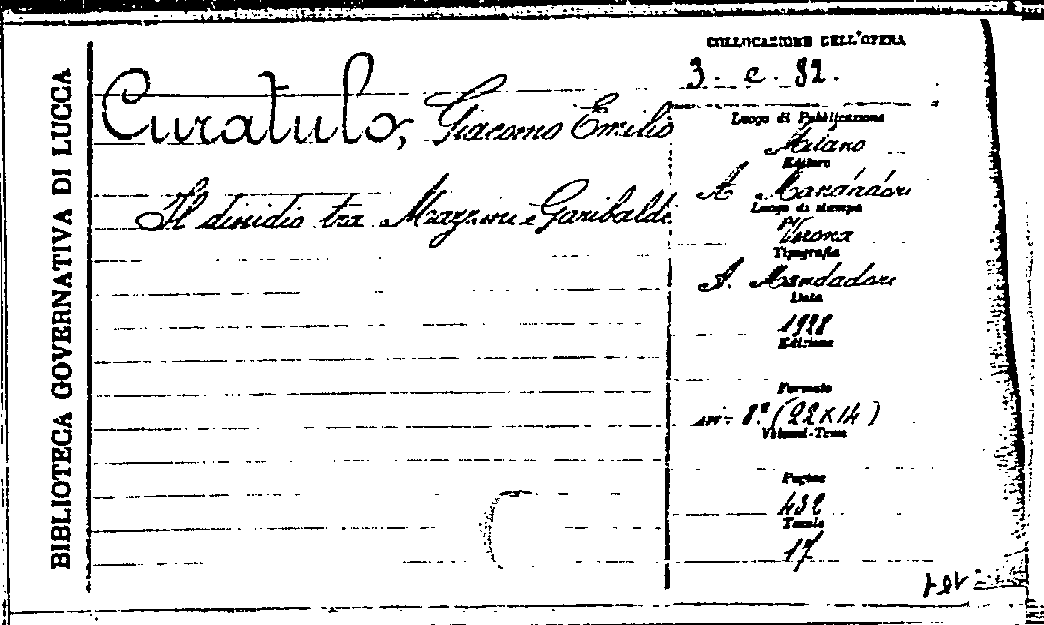 BIBLIOTECA GOVERNATIVA DI LUCCA
Curatulo, Giacomo Emilio
Il dissidio tra Mazzini e Garibaldi
COLLOCAZIONE DELL'OPERA
3. c. 82.
Luogo di Pubblicazione
Milano
Editore
A. Mondadori
Luogo di stampa
Verona
Tipografia
A. Mondadori
Data
1928
Edizione
Formato
8° (22 x 14)
Volumi-Tomo
Pagine
432
Tavole
17